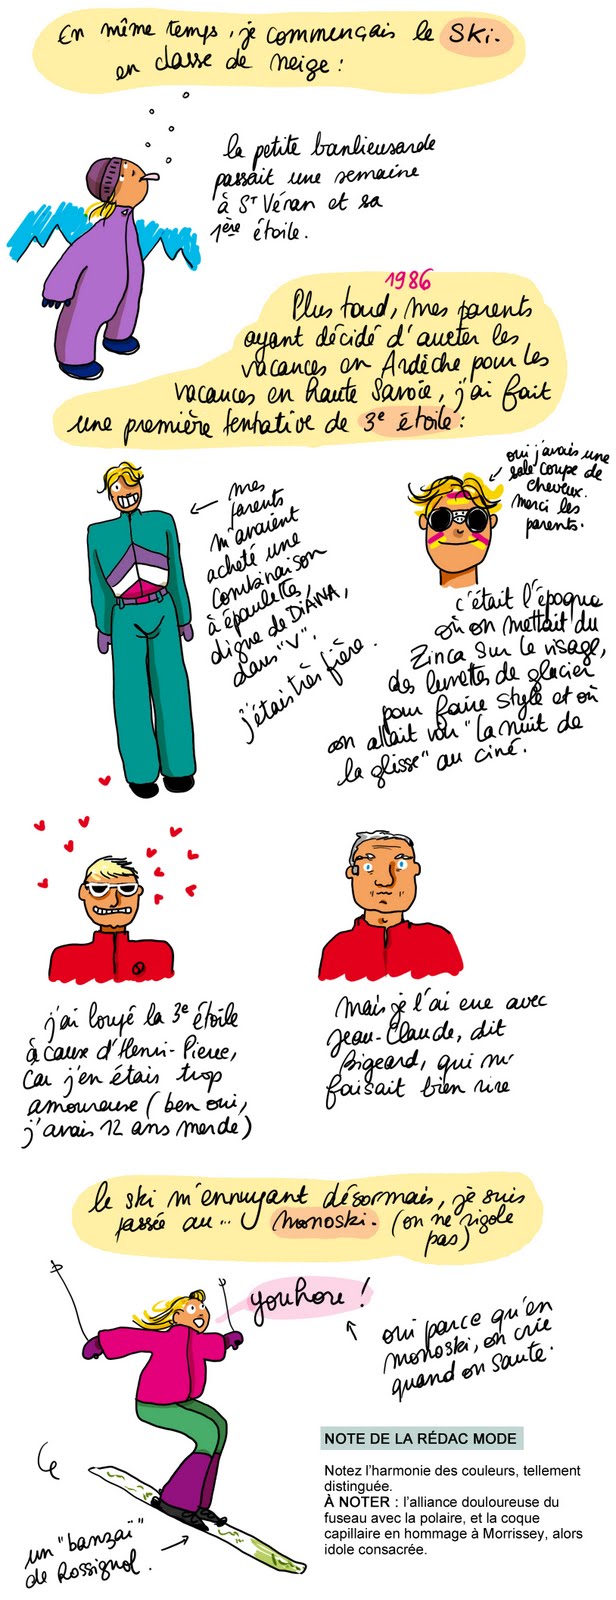 En même temps, je commençais le Ski.
en classe de neige :
la petite banlieusarde
passait une semaine
à St Véran et sa
1ère étoile.
1986
Plus tard, mes parents
ayant décidé d'arreter les
vacances en Ardèche pour les
vacances en haute Savoie, j'ai fait
une première tentative de 3e étoile :
mes
parents
m'avaient
acheté une
combinaison
à épaulettes,
digne de DiANA,
dans "V".
j'étais très fière.
oui j'avais une
sale coupe de
cheveux.
merci les
parents.
c'était l'époque
où on mettait du
Zinca sur le visage,
des lunettes de glacier
pour faire style et où
on allait voir "la nuit de
la glisse" au ciné.
j'ai loupé la 3e étoile
à cause d'Henri-Pierre,
car j'en étais trop
amoureuse (ben oui,
j'avais 12 ans merde)
mais je l'ai eue avec
Jean-Claude, dit
Bigeard, qui m'
faisait bien rire
le ski m'ennuyant désormais, je suis
passée au... monoski. (on ne rigole
pas)
youhooo !
oui parce qu'en
monoski, on crie
quand on saute.
un "banzaï"
de Rossignol.
NOTE DE LA RÉDAC MODE
Notez l'harmonie des couleurs, tellement
distinguée.
À NOTER : l'alliance douloureuse du
fuseau avec la polaire, et la coque
capillaire en hommage à Morrissey, alors
idole consacrée.